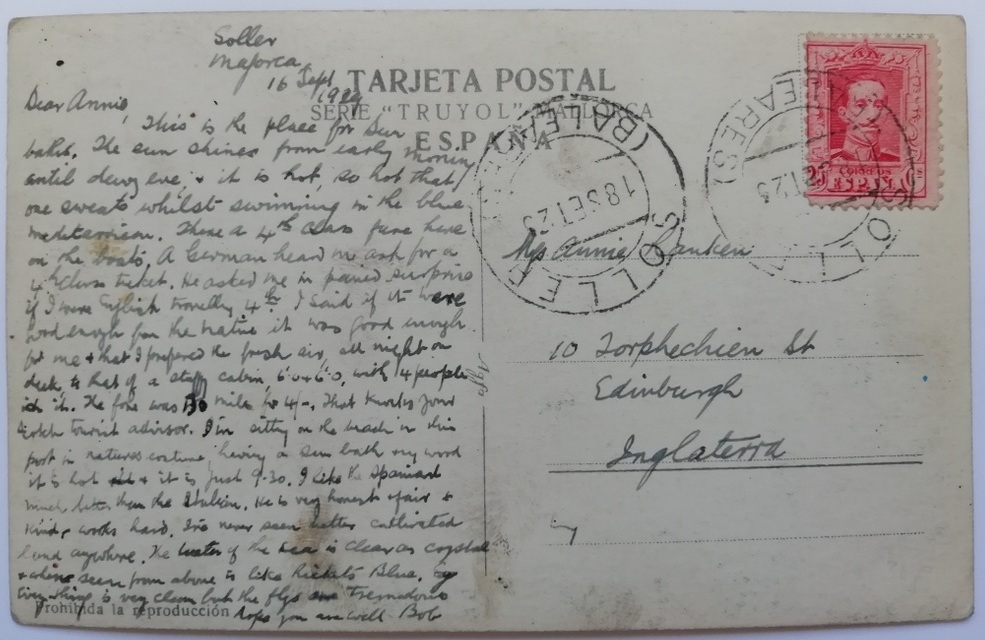 Soller
Majorca
16 Sept
1929
TARJETA POSTAL
SERIE "TRUYOL" MALLORCA
ESPAÑA
Dear Annie,
This is the place for Sun
baths. The sun shines from early morning
until dewy eve, + it is hot, so hot that
one sweats whilst swimming in the blue
mediterranean. There a 4th class fare here
on the boats. A German heard me ask for a
4th Class ticket. He asked me in pained surprise
if I were English travelling 4th. I said if it were
good enough for the native it was good enough
for me + that I prefered the fresh air, all night on
deck, to that of a stuffy cabin, 6'0 x 6'0, with 4 people
in it. The fare was 130 miles for 4/-. That knocks your
Scotch tourist advisor. I'm sitting on the beach in this
port in natures costume, having a sun bath my word
it is hot + it is just 9-30. I like the Spaniard
much better than the Italian. He is very honest + fair +
kind + works hard. I've never seen better cultivated
land anywhere. The water of the sea is clear as crystal
+ when seen from above is like Rickets Blue.
Everything is very clean but the flys are tremendous
hope you are well Bob
Prohibida la reproducción
SOLLER (BALEARES)
18 SET 29
SOLLER (BALEARES)
CORREOS
ESPAÑA
25
Annie
10 Torphichen St
Edinburgh
Inglaterra